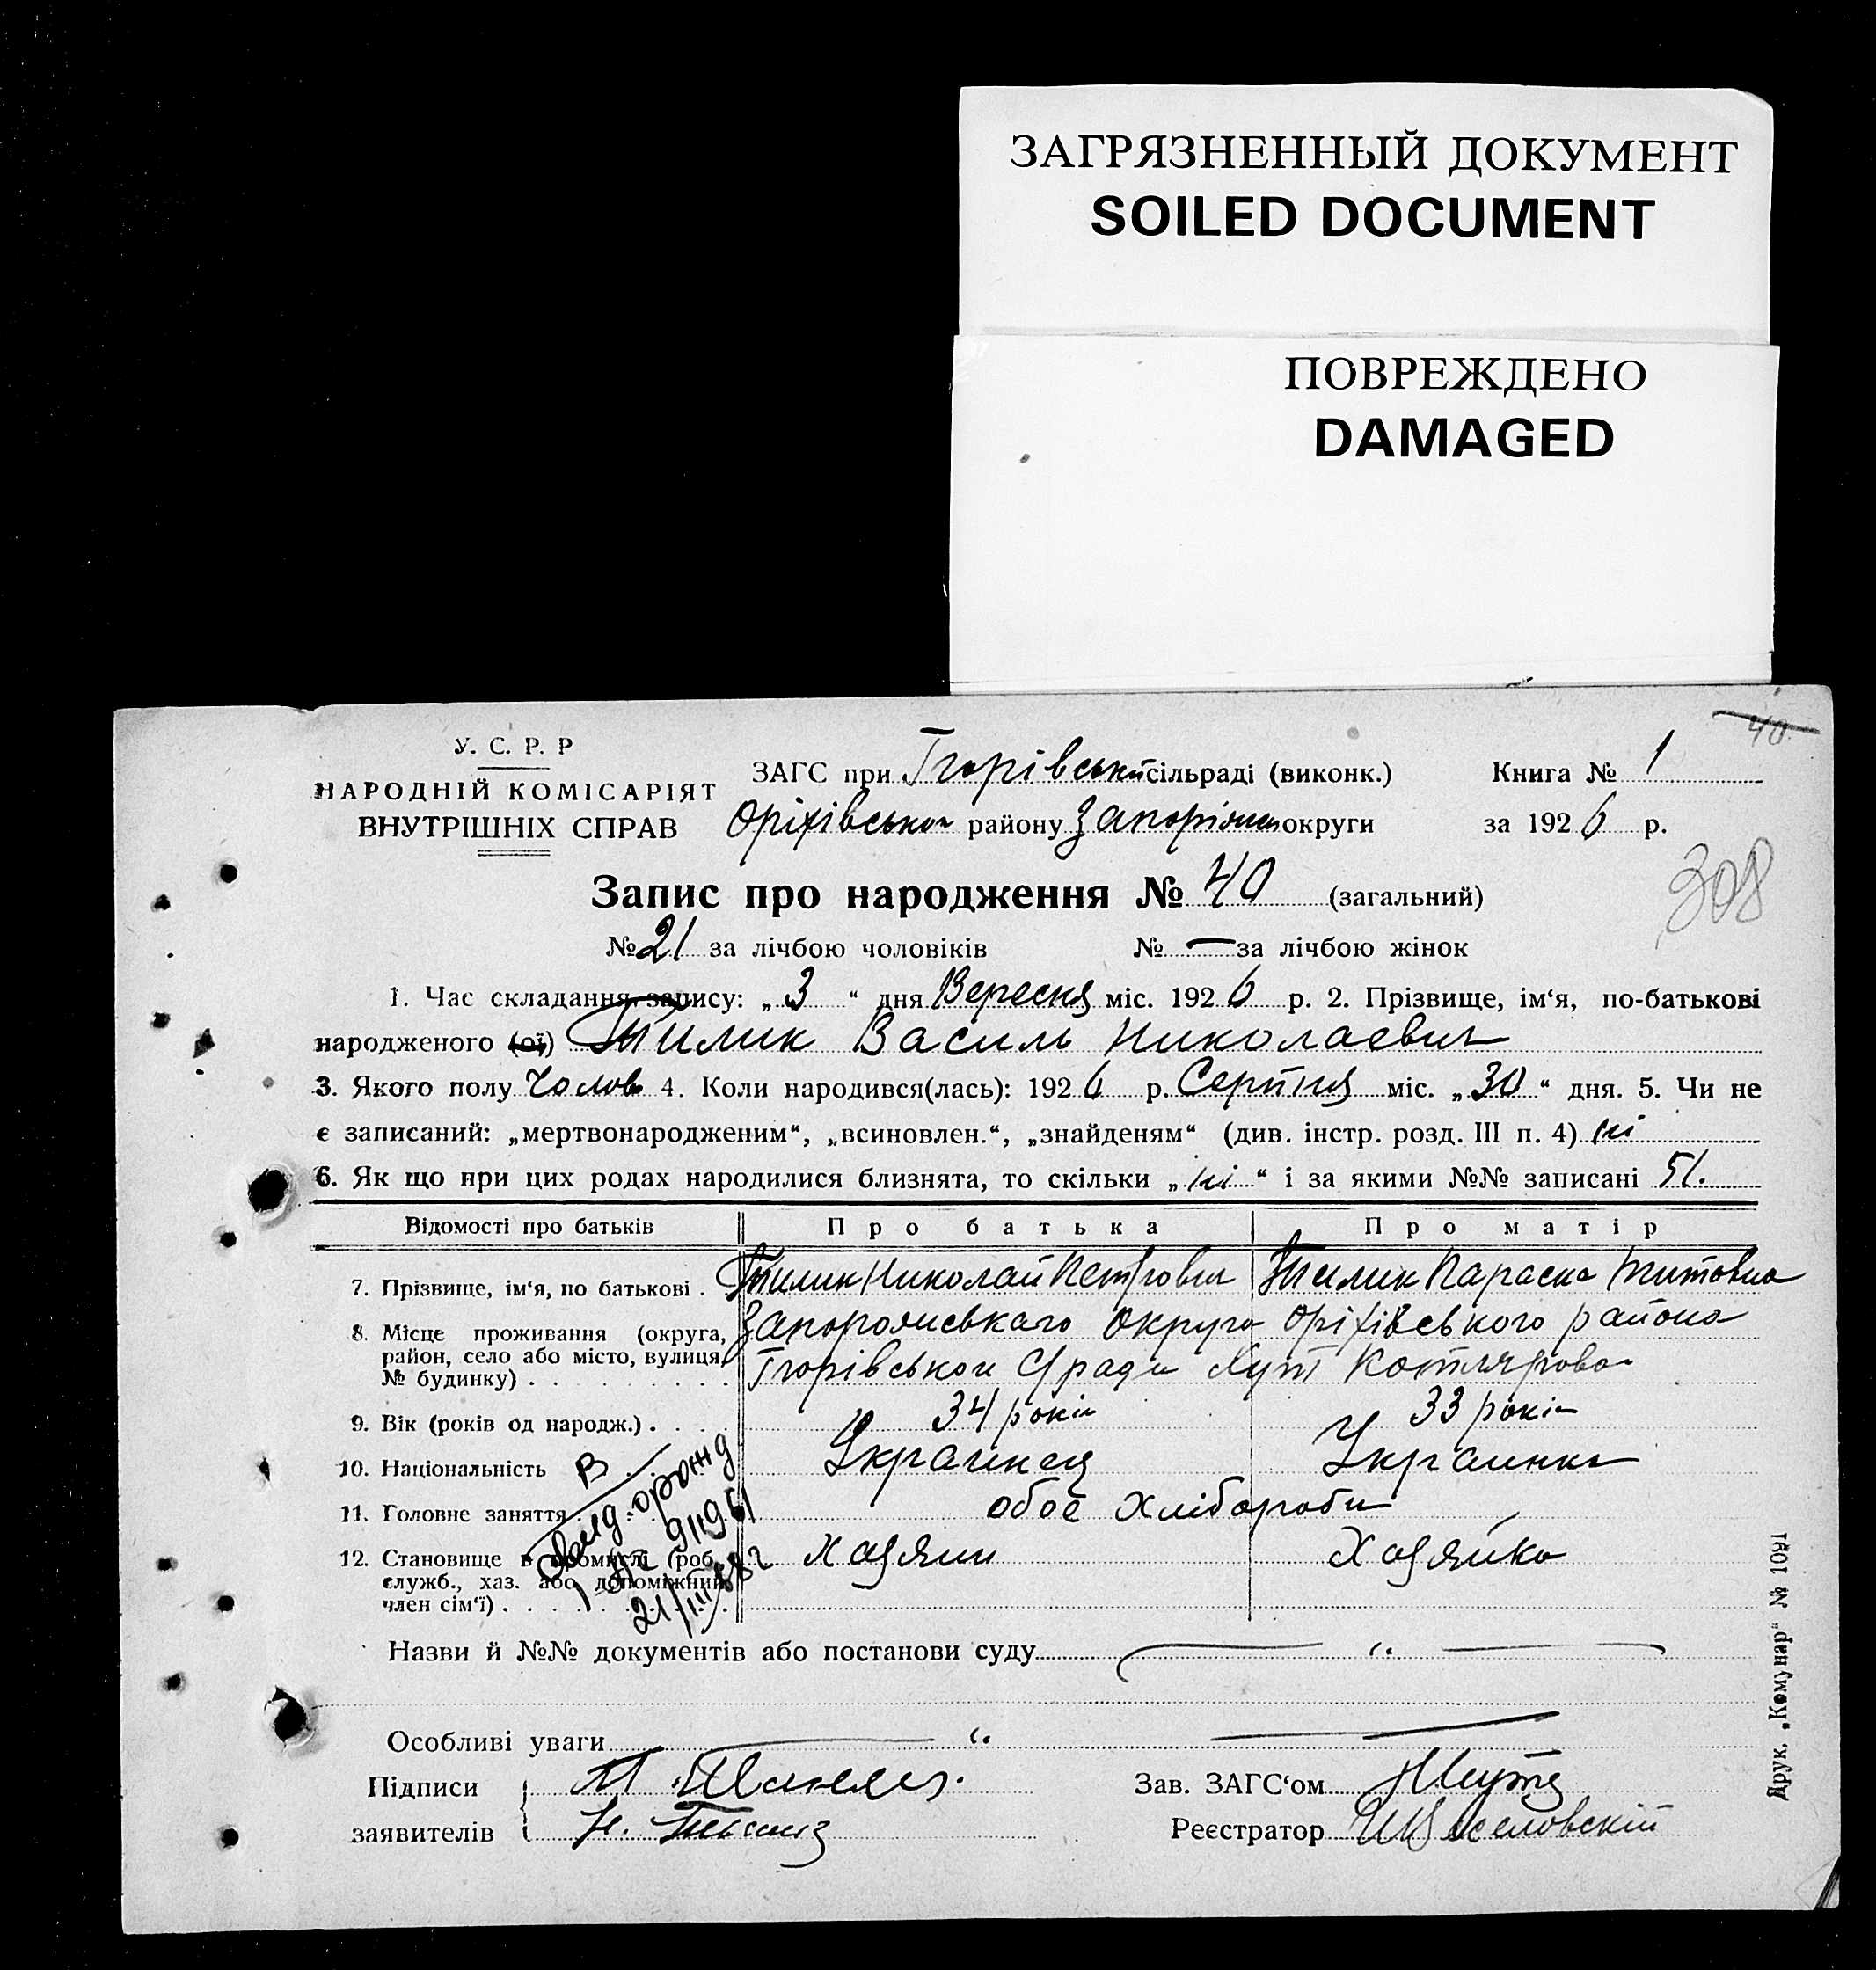 ЗАГРЯЗНЕННЫЙ ДОКУМЕНТ
SOILED DOCUMENT
ПОВРЕЖДЕНО
DAMAGED
40
У. С. Р. Р
НАРОДНІЙ КОМІСАРІЯТ
ВНУТРІШНІХ СПРАВ
ЗАГС при Ігорівській сільраді (виконк.) Книга № 1
Оріхівськ район у Запоріжськ округи за 1926 р.
308
Запис про народження № 40 (загальний)
№ 21 за лічбою чоловіків № — за лічбою жінок
1. Час складання запису: „3“ дня Вересня міс. 1926 р. 2. Прізвище, ім‘я, по-батькові
народженого (ої) Тилик Василь Николаевич
3. Якого полу Чолов 4. Коли народився(лась): 1926 р. Серпня міс. „30“ дня. 5. Чи не
є записаний: „мертвонародженим“, „всиновлен.“, „знайденям“ (див. інстр. розд. III п. 4) ні
6. Як що при цих родах народилися близнята, то скільки „ні“ і за якими №№ записані
Відомості про батьків Про батька Про матір
7. Прізвище, ім‘я, по батькові . Тилик Николай Петрович Тилик Параска Титовна
8. Місце проживання (округа, район, село або місто, вулиця, № будинку) . . . Запорожськаго Округа Оріхівського района
Ігорівськой С/ради Хут Котлярова
9. Вік (років од народж.) . . . 34 років 33 років
10. Національність Украинец Украинка
11. Головне заняття обоє Хлібороби
12. Становище в промислі (роб., служб., хаз. або допоміжний член сім‘ї) . . . Хазяин Хазяйка
Назви й №№ документів або постанови суду — “ —
Особливі уваги — “ —
Підписи
заявителів
Зав. ЗАГС‘ом
Реєстратор
Друк. „Комунар“ № 1091